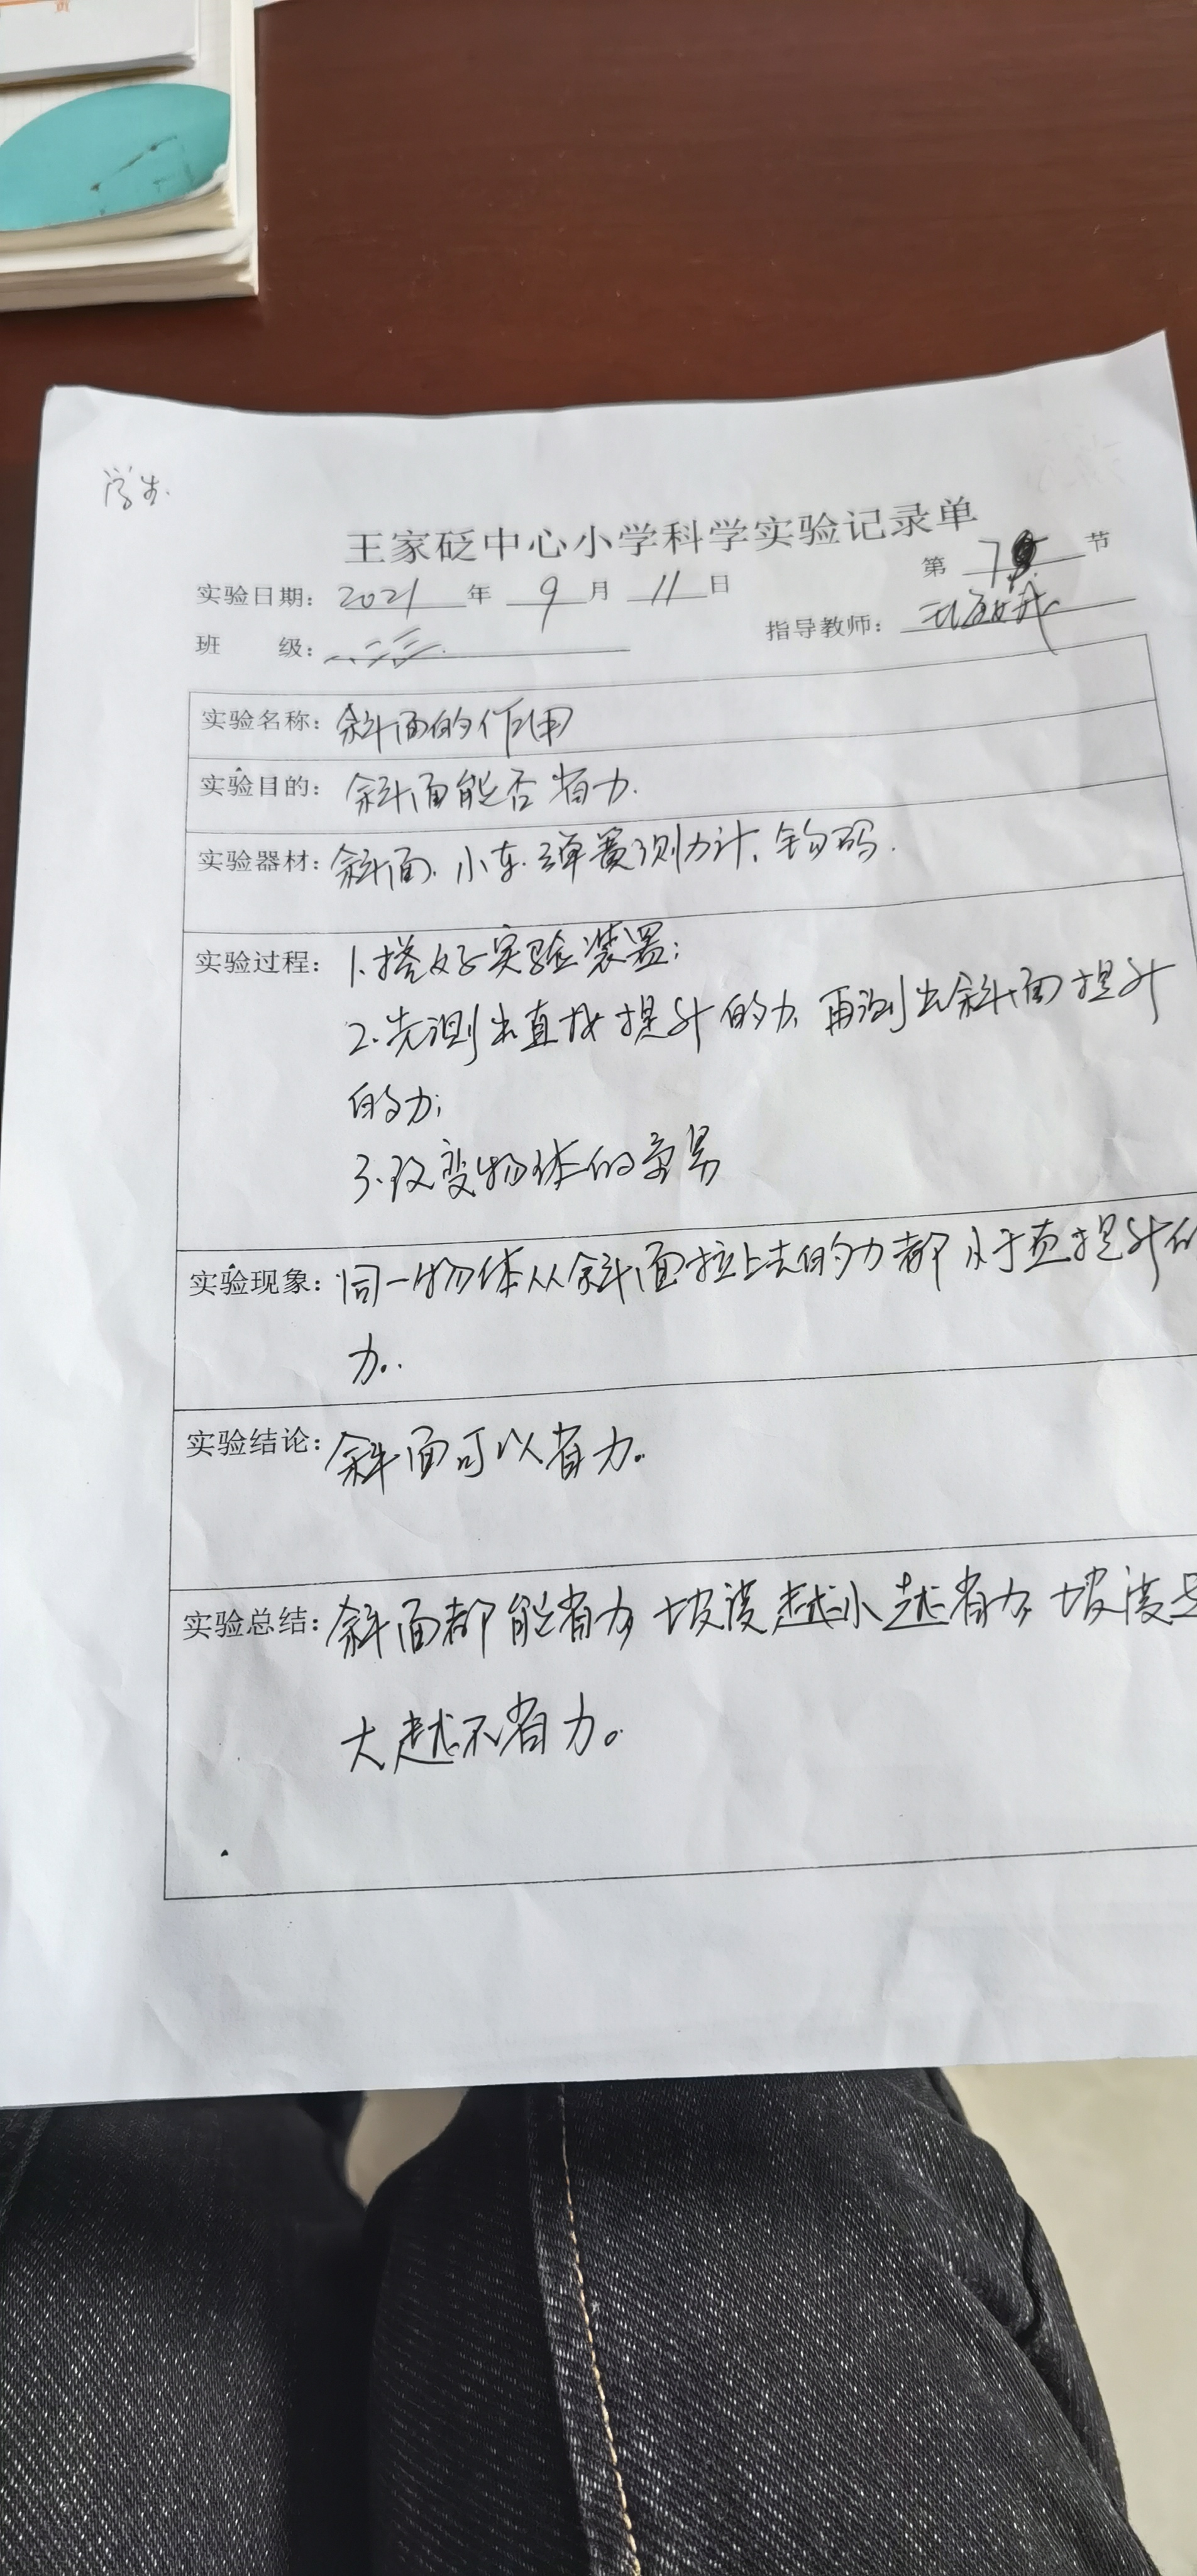 学生.
王家砭中心小学科学实验记录单
第 7 节
实验日期: 2021 年 9 月 11 日
指导教师:
班 级: 一、二、三、
实验名称: 斜面的作用
实验目的: 斜面能否省力.
实验器材: 斜面、小车、弹簧测力计、钩码.
实验过程: 1、搭好实验装置;
2、先测出直接提升的力、再测出斜面提升
的力;
3、改变物体的重量
实验现象: 同一物体从斜面拉上去的力都小于直提升的
力。
实验结论: 斜面可以省力。
实验总结: 斜面都能省力 坡度越小越省力 坡度
大越不省力。